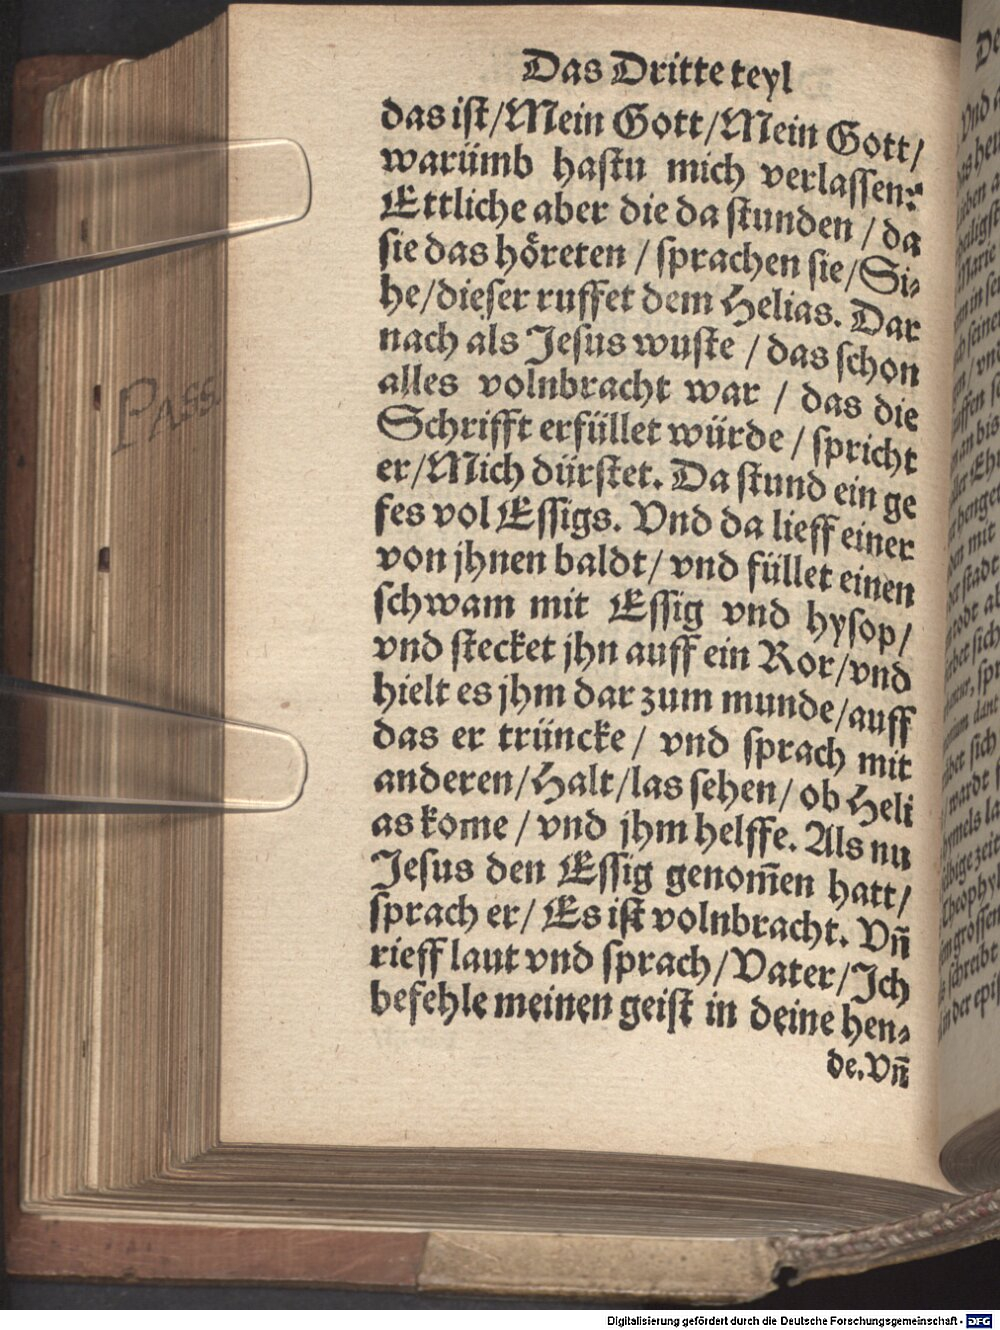 Das Dritte teyl
das ist/Mein Gott/Mein Gott/
warümb hastu mich verlassen?
Ettliche aber die da stunden / da
sie das höreten / sprachen sie/Si-
he/dieser ruffet dem Helias. Dar
nach als Jesus wuste / das schon
alles volnbracht war / das die
Schrifft erfüllet würde / spricht
er/Mich dürstet. Da stund ein ge
fes vol Essigs. Vnd da lieff einer
von jhnen baldt/ vnd füllet einen
schwam mit Essig vnd hysop/
vnd stecket jhn auff ein Ror/vnd
hielt es jhm dar zum munde/auff
das er trüncke/ vnd sprach mit
anderen/Halt/las sehen/ ob Heli
as kome / vnd jhm helffe. Als nu
Jesus den Essig genom̃en hatt/
sprach er/ Es ist volnbracht. Vñ
rieff laut vnd sprach/Vater/Ich
befehle meinen geist in deine hen-
de. Vñ
PASS.
Digitalisierung gefördert durch die Deutsche Forschungsgemeinschaft - DFG